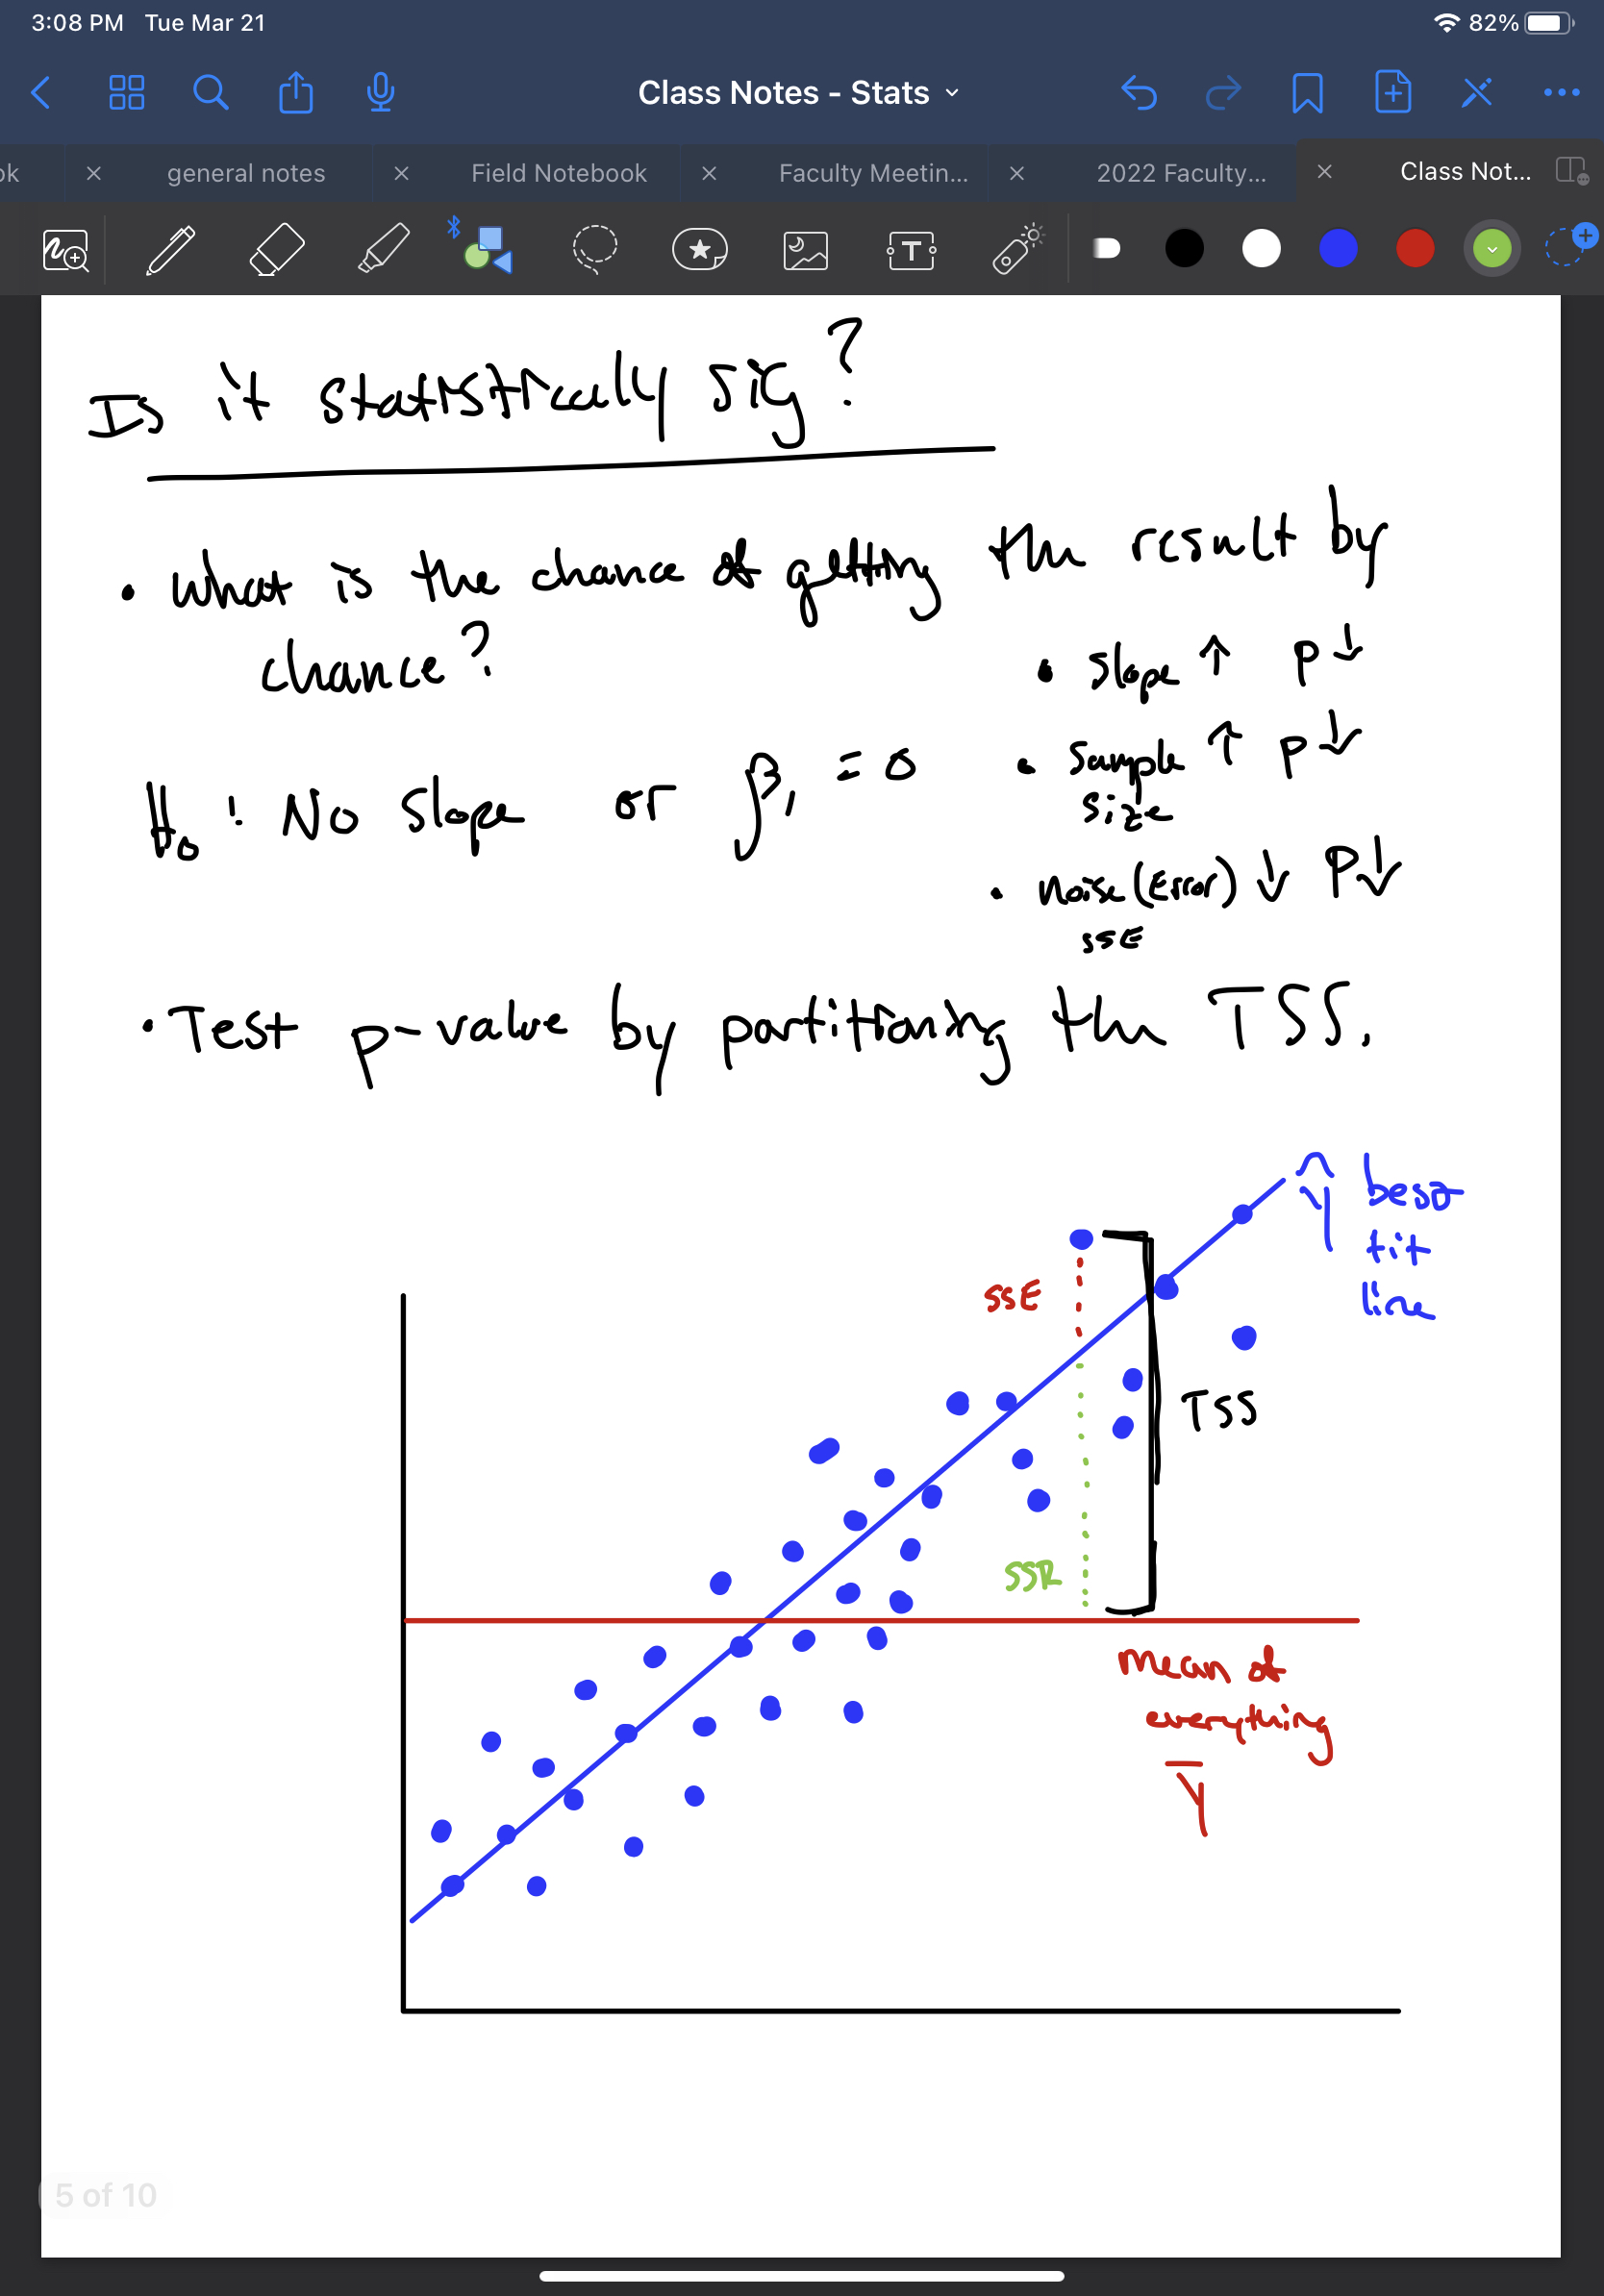 3:08 PM Tue Mar 21
82%
Class Notes - Stats
ok
general notes
Field Notebook
Faculty Meetin...
2022 Faculty...
Class Not...
Is it statistically sig?
• What is the chance of getting the result by
chance?
• slope ↑ p↓
• Sample ↑ p↓
size
H₀: No slope or β₁ = 0
• noise (Error) ↓ P↓
SSE
• Test p-value by partitioning the TSS.
Ŷ best
fit
line
SSE
TSS
SSR
mean of
everything
Y̅
5 of 10